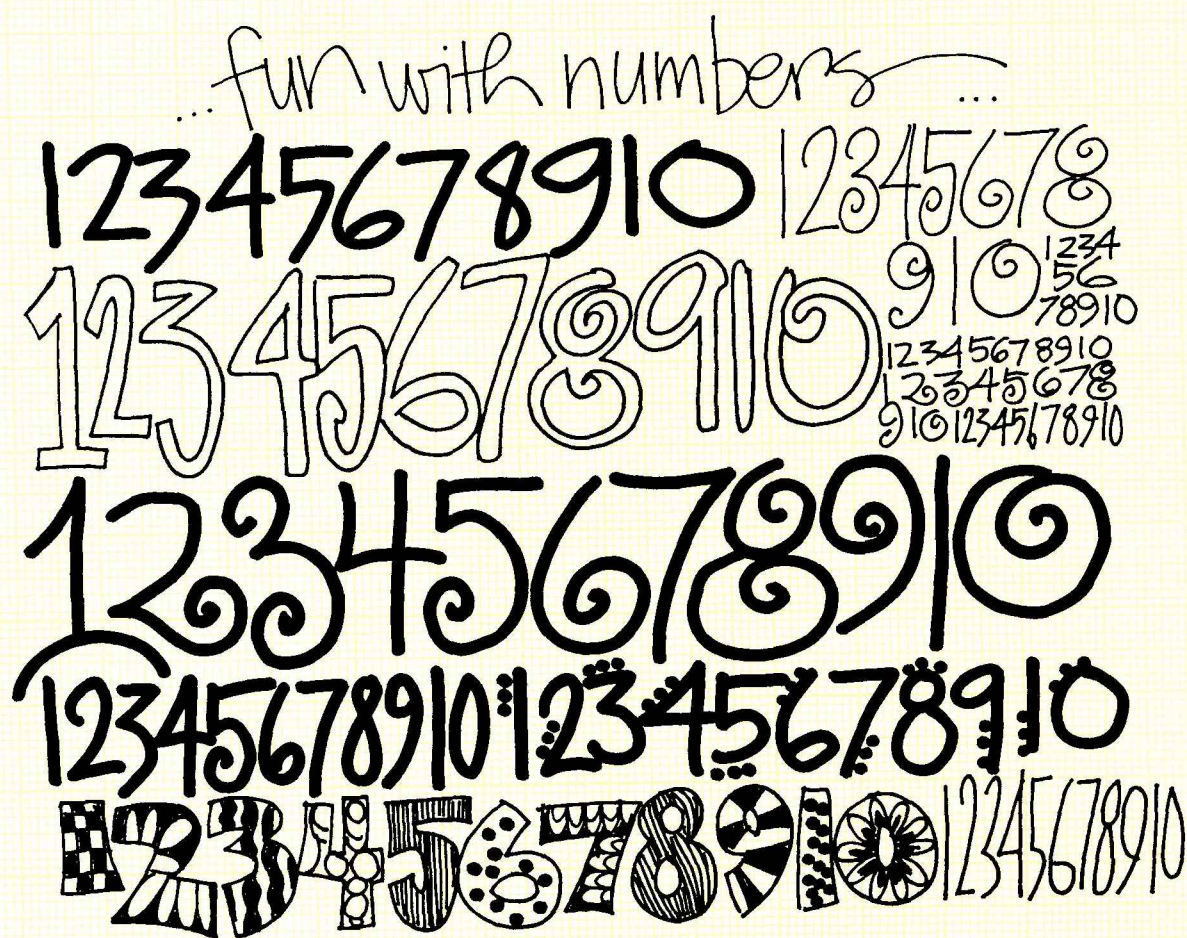 ...fun with numbers...
12345678910
12345678
910
1234
56
78910
12345678910
12345678910
12345678
910 12345678910
12345678910
12345678910 12345678910
12345678910 12345678910